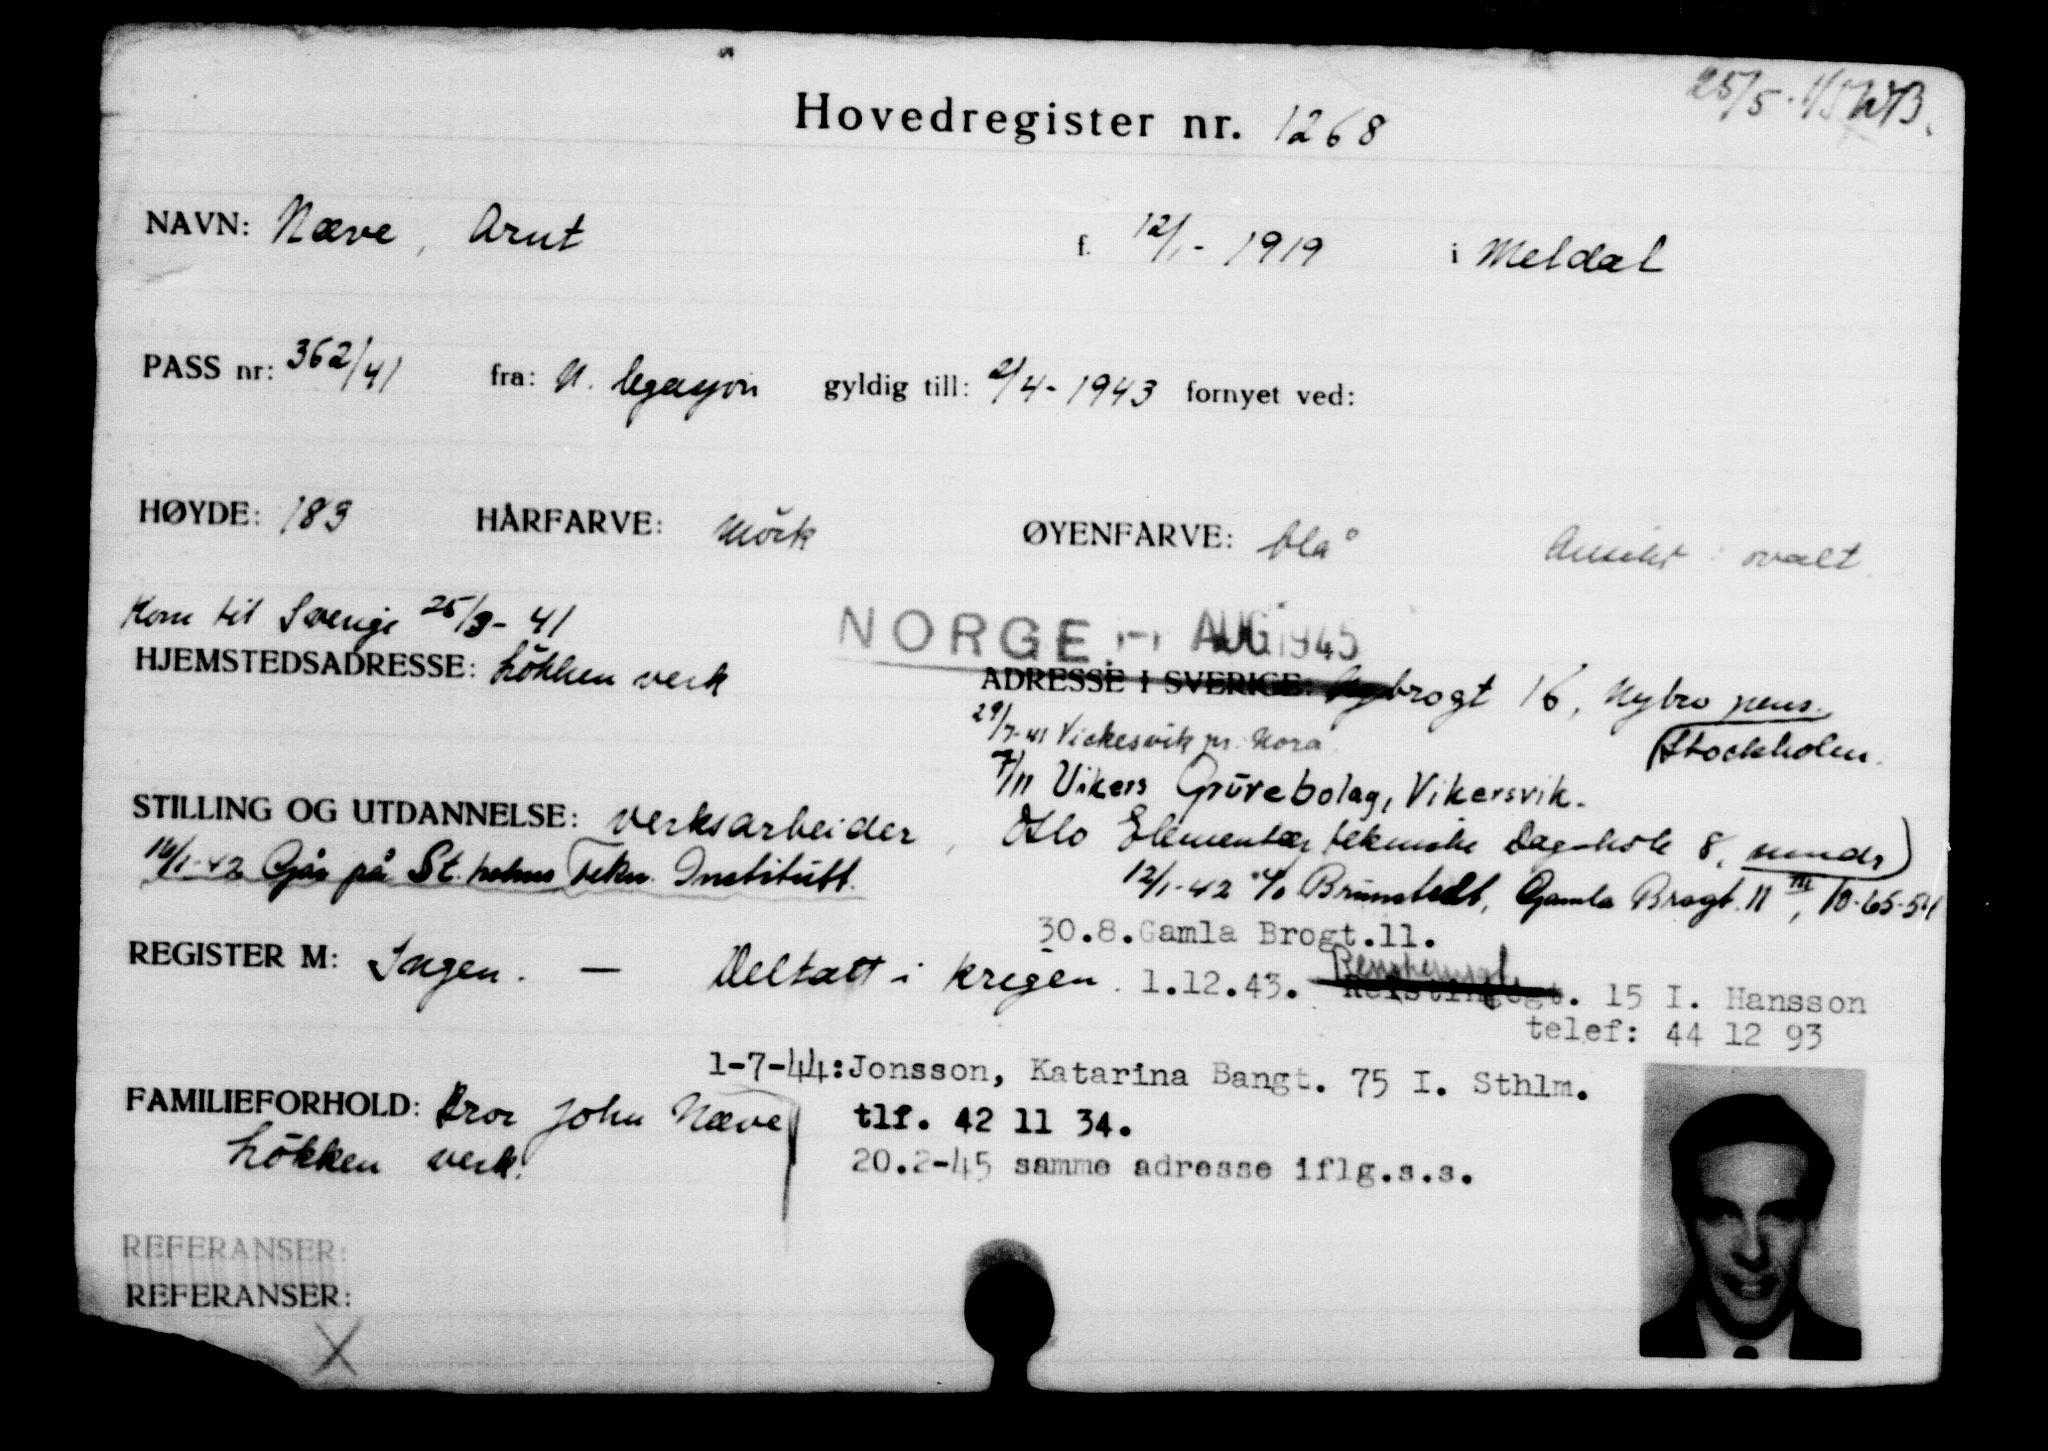 Hovedregister nr. 1268
25/5
NAVN: Næve, Arnt f. 12/1 - 1919 i Meldal
PASS nr: 362/41 fra: N. legasjon gyldig till: 2/4 - 1943 fornyet ved:
HØYDE: 183 HÅRFARVE: Mörk ØYENFARVE: blå Ansikt : ovalt
Kom til Sverige 25/3 - 41
NORGE AUG 1945
HJEMSTEDSADRESSE: Lökken verk
ADRESSE I SVERIGE: Nybrogt 16, Nybro pens. Stockholm.
29/7-41 Vickesvik pr. Nora
7/11 Vikers Gruvebolag, Vikersvik.
STILLING OG UTDANNELSE: verksarbeider, Oslo Elementær tekniske Dagskole 8.
14/1-42 Går på St.holms Tekn. Institutt.
12/1-42 c/o Brunstedt, Gamla Brogt. 11 III, 10-65-51
30.8. Gamla Brogt.11.
REGISTER M: Ingen. — Deltatt i krigen.
1.12.43. 15 I. Hansson
telef: 44 12 93
1-7-44: Jonsson, Katarina Bangt. 75 I. Sthlm.
tlf. 42 11 34.
20.2-45 samme adresse iflg.s.s.
FAMILIEFORHOLD: Bror John Næve
Lökken verk.
REFERANSER:
REFERANSER:
X